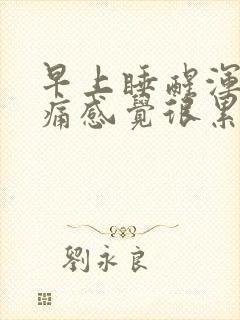 早上睡醒渾
痛感覺很累
劉永良